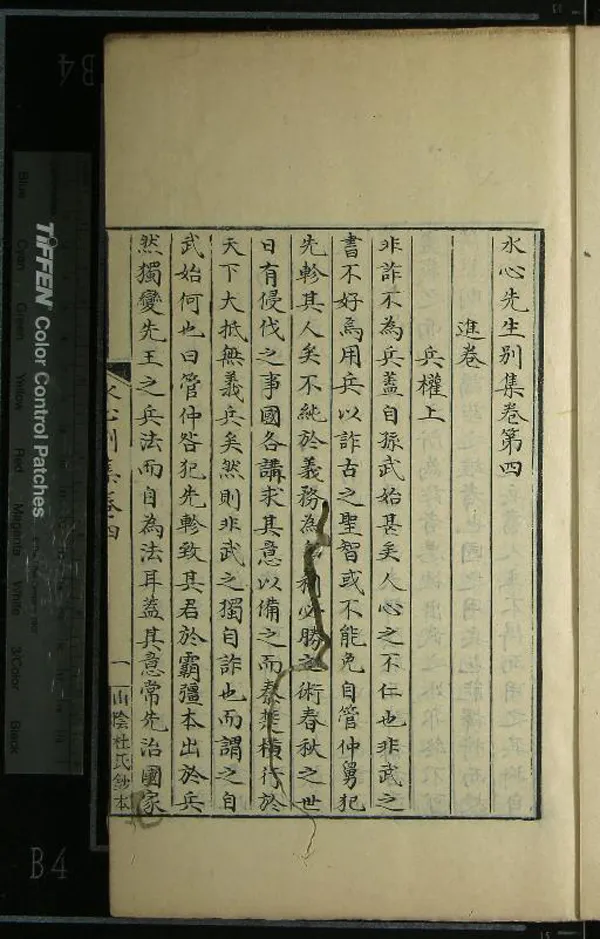 水心先生别集卷第四
進卷
兵權上
非詐不為兵蓋自孫武始甚矣人心之不仁也非武之
書不好為用兵以詐古之聖智或不能免自管仲舅犯
先軫其人矣不純於義務為利必勝之術春秋之世
日有侵伐之事國各講求其意以備之而秦楚橫行於
天下大抵無義兵矣然則非武之獨自詐也而謂之自
武始何也曰管仲咎犯先軫致其君於霸彊本出於兵
然獨變先王之兵法而自為法耳蓋其意常先治國家
水心别集卷四 一 山陰杜氏鈔本
TIFFEN Color Control Patches
Blue Cyan Green Yellow Red Magenta White 3/Color Black
B4
B4